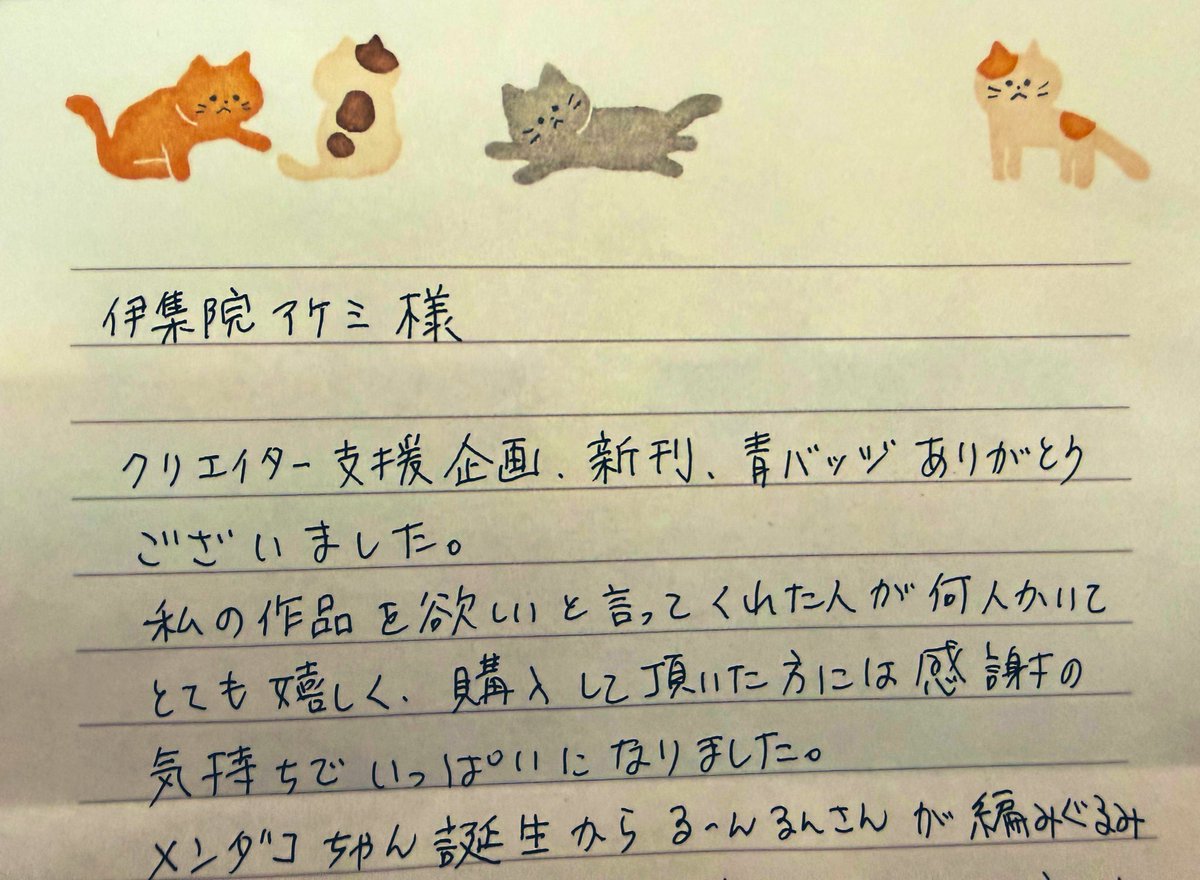 伊集院アケミ様
クリエイター支援企画、新刊、青バッジありがとう
ございました。
私の作品を欲しいと言ってくれた人が何人かいて
とても嬉しく、購入して頂いた方には感謝の
気持ちでいっぱいになりました。
メンダコちゃん誕生からる〜んるんさんが編みぐるみ